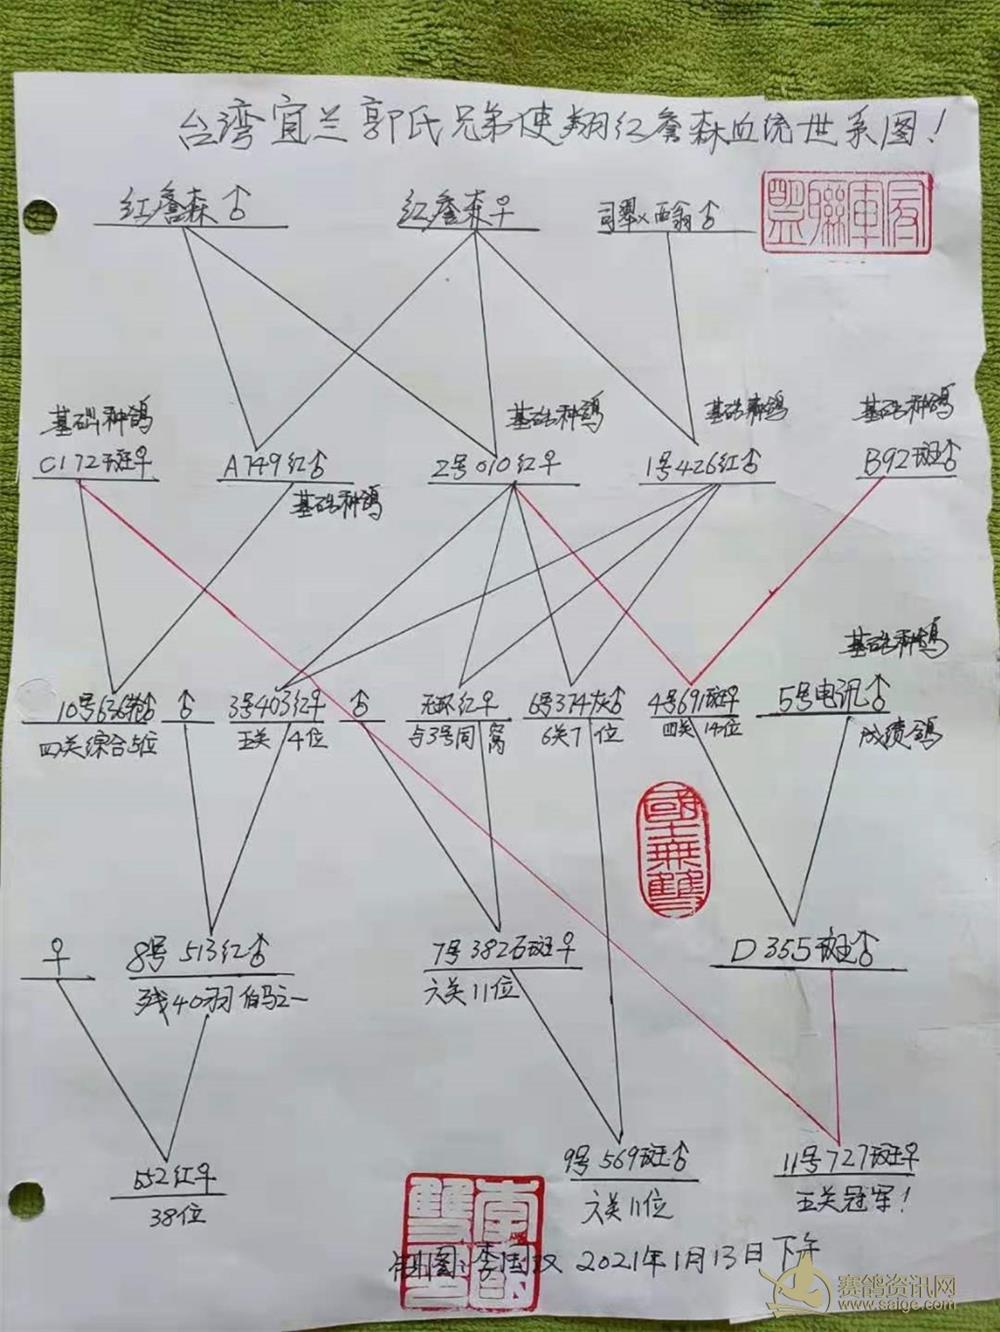 台湾宜兰郭氏兄弟使翔红詹森血统世系图！
红詹森♂ 红詹森♀ 司翠×西翁♂
盟聯軍
基础种鸽 基础种鸽 基础种鸽 基础种鸽
C172斑♀ A749红♂ 2号010红♀ 1号426红♂ B92斑♂
基础种鸽
基础种鸽
10号 ♂ ♂ 3号403红♀ ♂ 无环红♀ 6号374灰♂ 4号691斑♀ 5号电讯♂
四关综合5位 五关 4位 与3号同窝 6关7位 四关 14位 成绩鸽
國士無雙
♀ 8号 513红♂ 7号382石斑♀ D355斑♂
残40羽伯马之一 六关11位
552红♀ 9号569斑♂ 11号727斑♀
38位 六关11位 五关冠军！
制图：李国双 2021年1月13日下午
赛鸽资讯网
www.saige.com